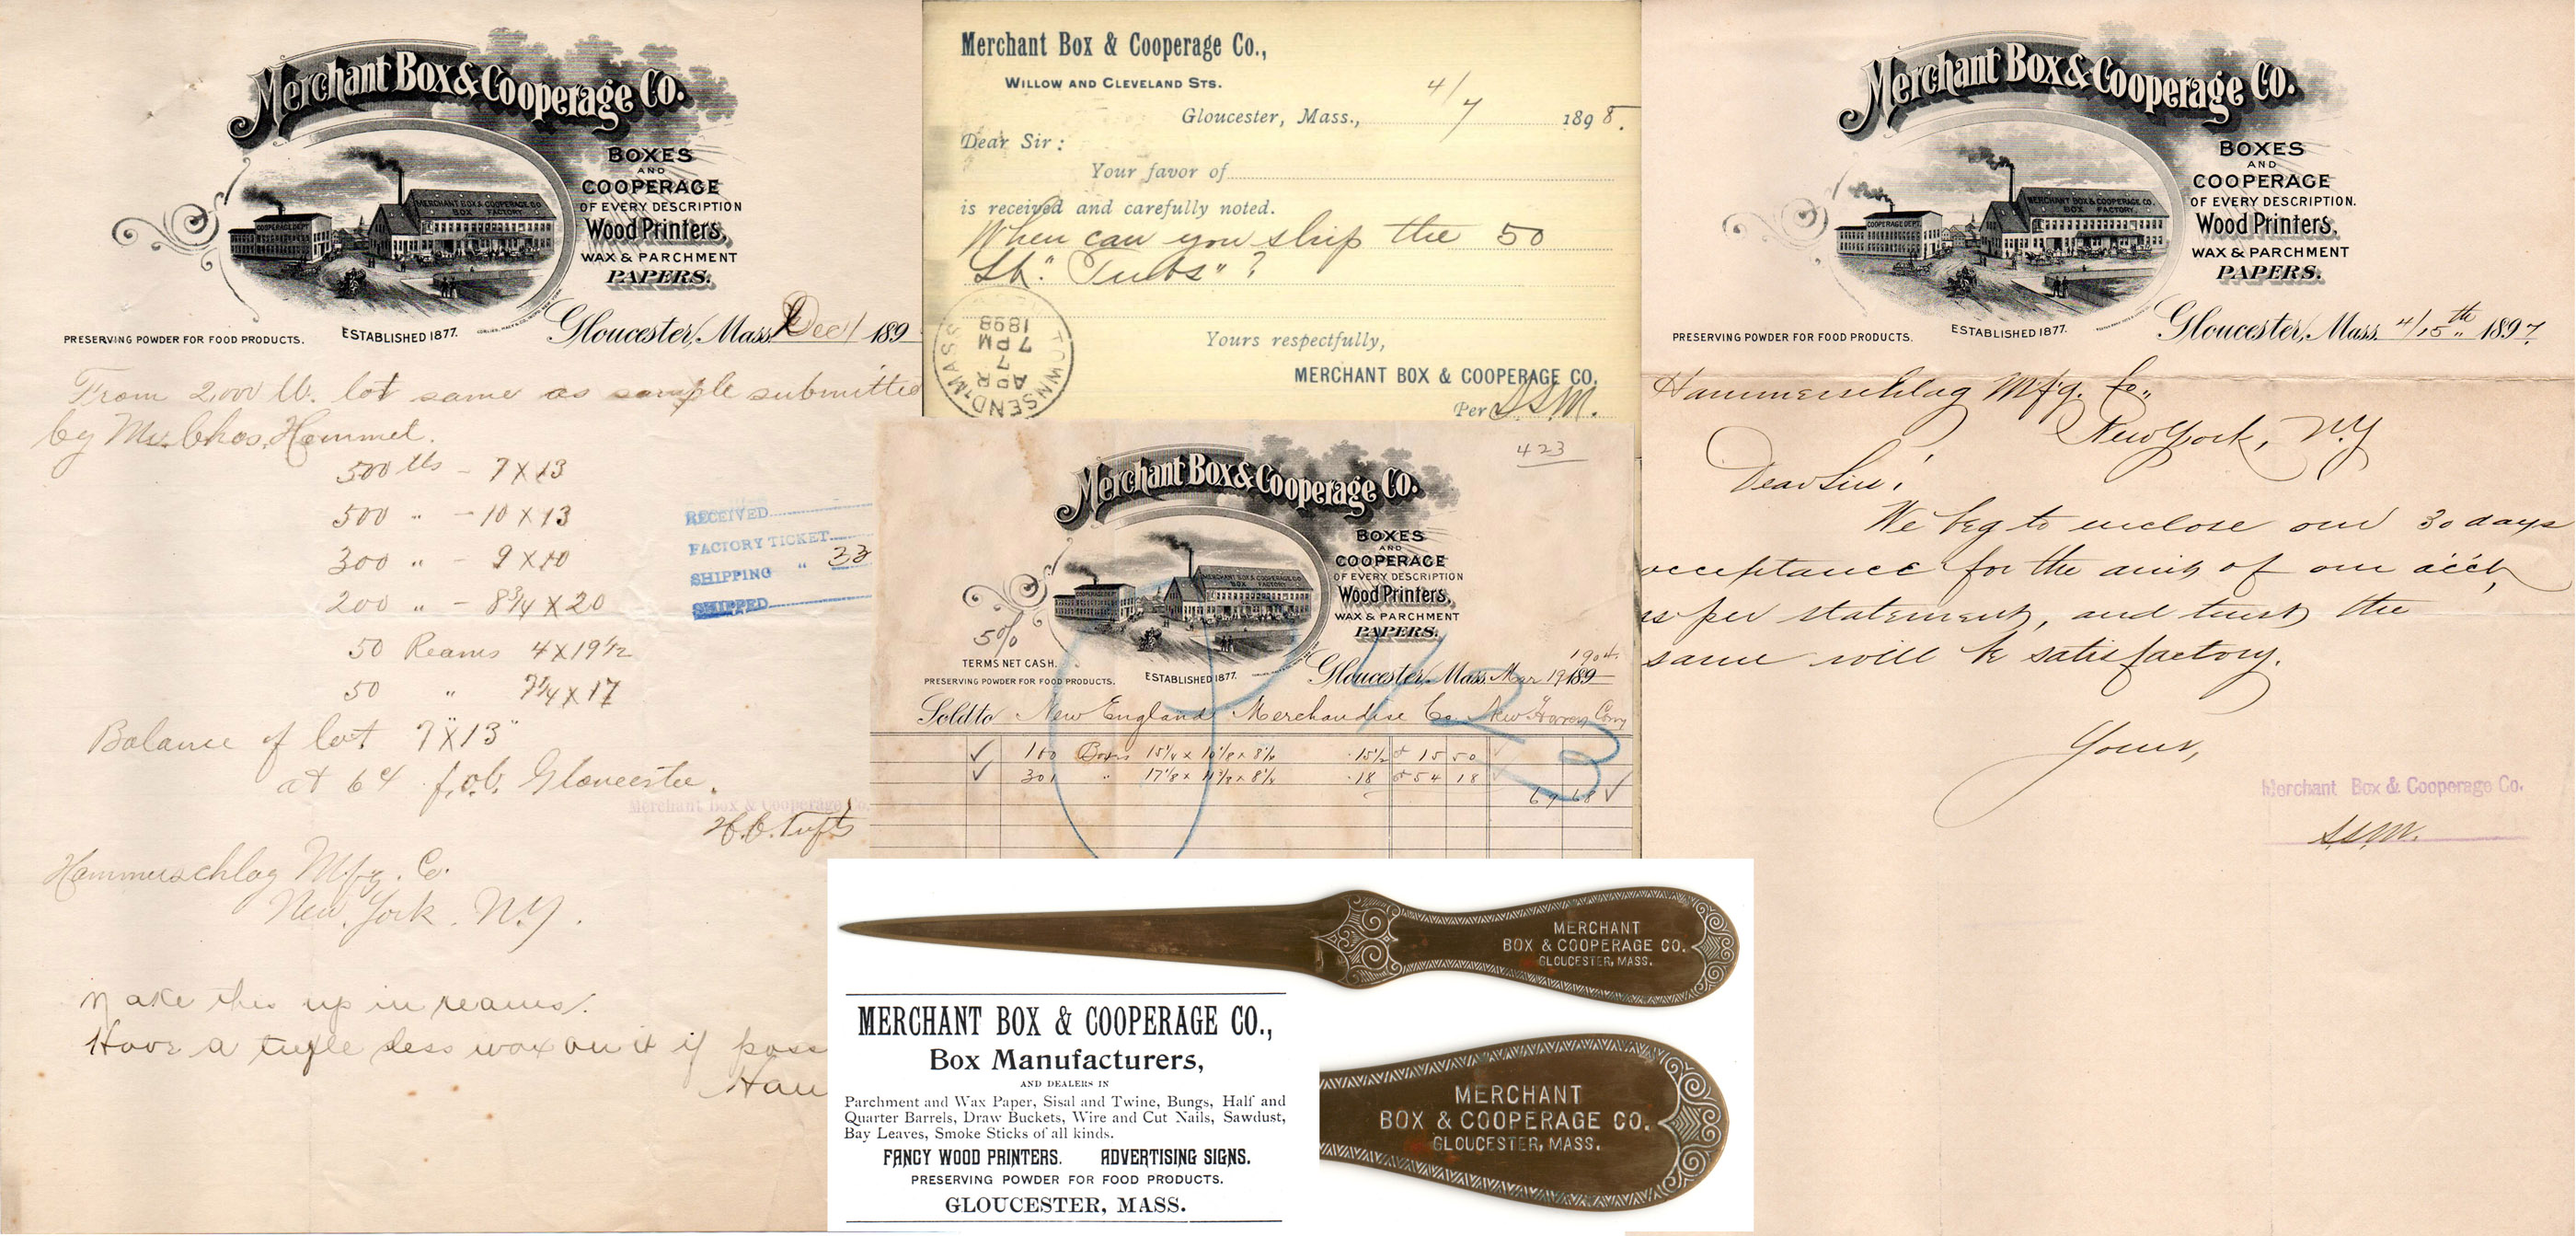 Merchant Box & Cooperage Co.
BOXES
AND
COOPERAGE
OF EVERY DESCRIPTION
Wood Printers,
WAX & PARCHMENT
PAPERS.
COOPERAGE DEPT.
MERCHANT BOX & COOPERAGE CO.
BOX FACTORY
PRESERVING POWDER FOR FOOD PRODUCTS.
ESTABLISHED 1877.
Gloucester, Mass. Dec 1 189
From 2,000 lb. lot same as sample submitted
by Mr. Chas. Hammel.
500 lbs - 7 X 13
500 " - 10 X 13
300 " - 9 X 10
200 " - 8 3/4 X 20
50 Reams 4 X 19 1/2
50 " 7 1/4 X 17
RECEIVED
FACTORY TICKET
SHIPPING " 33
SHIPPED
Balance of lot 7" X 13"
at 6¢ f.o.b. Gloucester.
Merchant Box & Cooperage Co.
H.C. Tufts
Hammerschlag Mfg. Co.
New York. N.Y.
Make this up in reams.
Have a trifle less wax on it if poss
Merchant Box & Cooperage Co.,
WILLOW AND CLEVELAND STS.
Gloucester, Mass., 4/7 1898.
Dear Sir:
Your favor of
is received and carefully noted.
When can you ship the 50
Lb. "Tubs"?
Yours respectfully,
MERCHANT BOX & COOPERAGE CO.
Per S.S.M.
TOWNSEND. MASS
APR
7
7 PM
1898
423
Merchant Box & Cooperage Co.
BOXES
AND
COOPERAGE
OF EVERY DESCRIPTION
Wood Printers,
WAX & PARCHMENT
PAPERS.
COOPERAGE DEPT.
MERCHANT BOX & COOPERAGE CO.
BOX FACTORY
5%
TERMS NET CASH.
PRESERVING POWDER FOR FOOD PRODUCTS.
ESTABLISHED 1877.
1904.
Gloucester, Mass. Mar 19 189
Sold to New England Merchandise Co. New Haven Conn
100 Boxes 15 1/4 x 10 1/8 x 8 1/2 .15 1/2 15 50
301 " .18 54 18
69 68
Merchant Box & Cooperage Co.
BOXES
AND
COOPERAGE
OF EVERY DESCRIPTION.
Wood Printers,
WAX & PARCHMENT
PAPERS.
COOPERAGE DEPT.
MERCHANT BOX & COOPERAGE CO.
BOX FACTORY.
PRESERVING POWDER FOR FOOD PRODUCTS.
ESTABLISHED 1877.
Gloucester, Mass. 4/15th 1897.
Hammerschlag Mfg. Co.,
New York, N.Y
Dear Sirs:
We beg to enclose our 30 days
acceptance for the amt of our acct,
as per statement, and trust the
same will be satisfactory.
Yours,
Merchant Box & Cooperage Co.
S.S.M.
MERCHANT
BOX & COOPERAGE CO.
GLOUCESTER, MASS.
MERCHANT BOX & COOPERAGE CO.,
Box Manufacturers,
AND DEALERS IN
Parchment and Wax Paper, Sisal and Twine, Bungs, Half and
Quarter Barrels, Draw Buckets, Wire and Cut Nails, Sawdust,
Bay Leaves, Smoke Sticks of all kinds.
FANCY WOOD PRINTERS. ADVERTISING SIGNS.
PRESERVING POWDER FOR FOOD PRODUCTS.
GLOUCESTER, MASS.
MERCHANT
BOX & COOPERAGE CO.
GLOUCESTER, MASS.